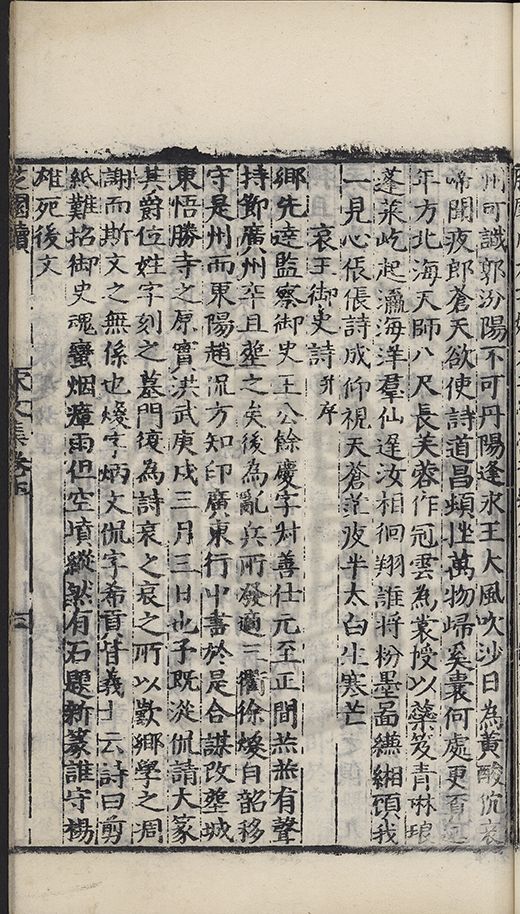 州可識郭汾陽不可丹陽逢永王大風吹沙日為黃酸伉哀
啼聞夜郎蒼天欲使詩道昌頓挫萬物歸奚囊何處更
年方北海天師八尺長芙蓉作冠雲為裳授以蘂笈青琳琅
蓬萊屹起瀛海洋羣仙逢汝相徊翔誰將枌墨啚縑緗頎我
一見心倀倀詩成仰視天蒼茫夜半太白生寒芒
哀王御史詩并序
鄉先達監察御史王公餘慶字叔善仕元至正間烝烝有聲
持節廣州卒且塟之矣後為亂兵所發適三衢徐煥自韶移
守是州而東陽趙侃方知印廣東行中書於是合謀改塟城
東悟勝寺之原實洪武庚戌三月三日也予既從侃請大篆
其爵位姓字刻之墓門復為詩哀之哀之所以歎鄉學之凋
謝而斯文之無係也煥字炳文侃字希貢皆義士云詩曰剪
紙難招御史魂蠻烟瘴雨但空墳縱然有石題新篆誰守楊
雄死後文
芝園續
宋文集卷五
三